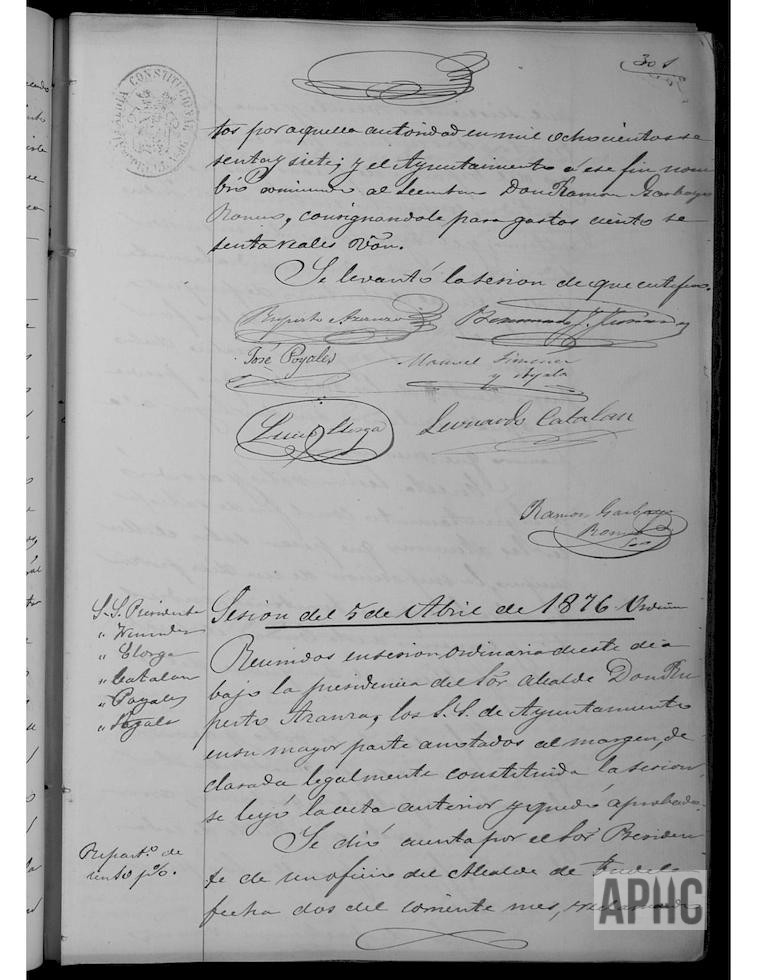 301
ALCALDIA CONSTITUCIONAL
tos por aquella autoridad en mil ochocientos se
senta y siete; y el Ayuntamiento á ese fin nom
bró Comisionado al Secretario Don Ramon Garbayo
Romeo, consignandole para gastos ciento se
senta reales Von.
Se levantó la sesion de que certifico.
Ruperto Aranza
José Poyales
Manuel Jimenez
y Ayala
Lucio Elorga
Leonardo Catalan
Ramon Garbayo
Romeo
Sesion del 5 de Abril de 1876
S.S. Presidente
" Elorga
" Catalan
" Poyales
" Ayala
Reunidos en sesion ordinaria de este dia
bajo la presidencia del Sor Alcalde Don Ru
perto Aranza, los S.S. de Ayuntamiento
en su mayor parte anotados al margen, de
clarada legalmente constituida la sesion,
se leyó la acta anterior y quedó aprobada.
Repart.º de
Se dió cuenta por el Sor Presiden
te de un oficio del Alcalde de Tudela
fecha dos del corriente mes,
APHC